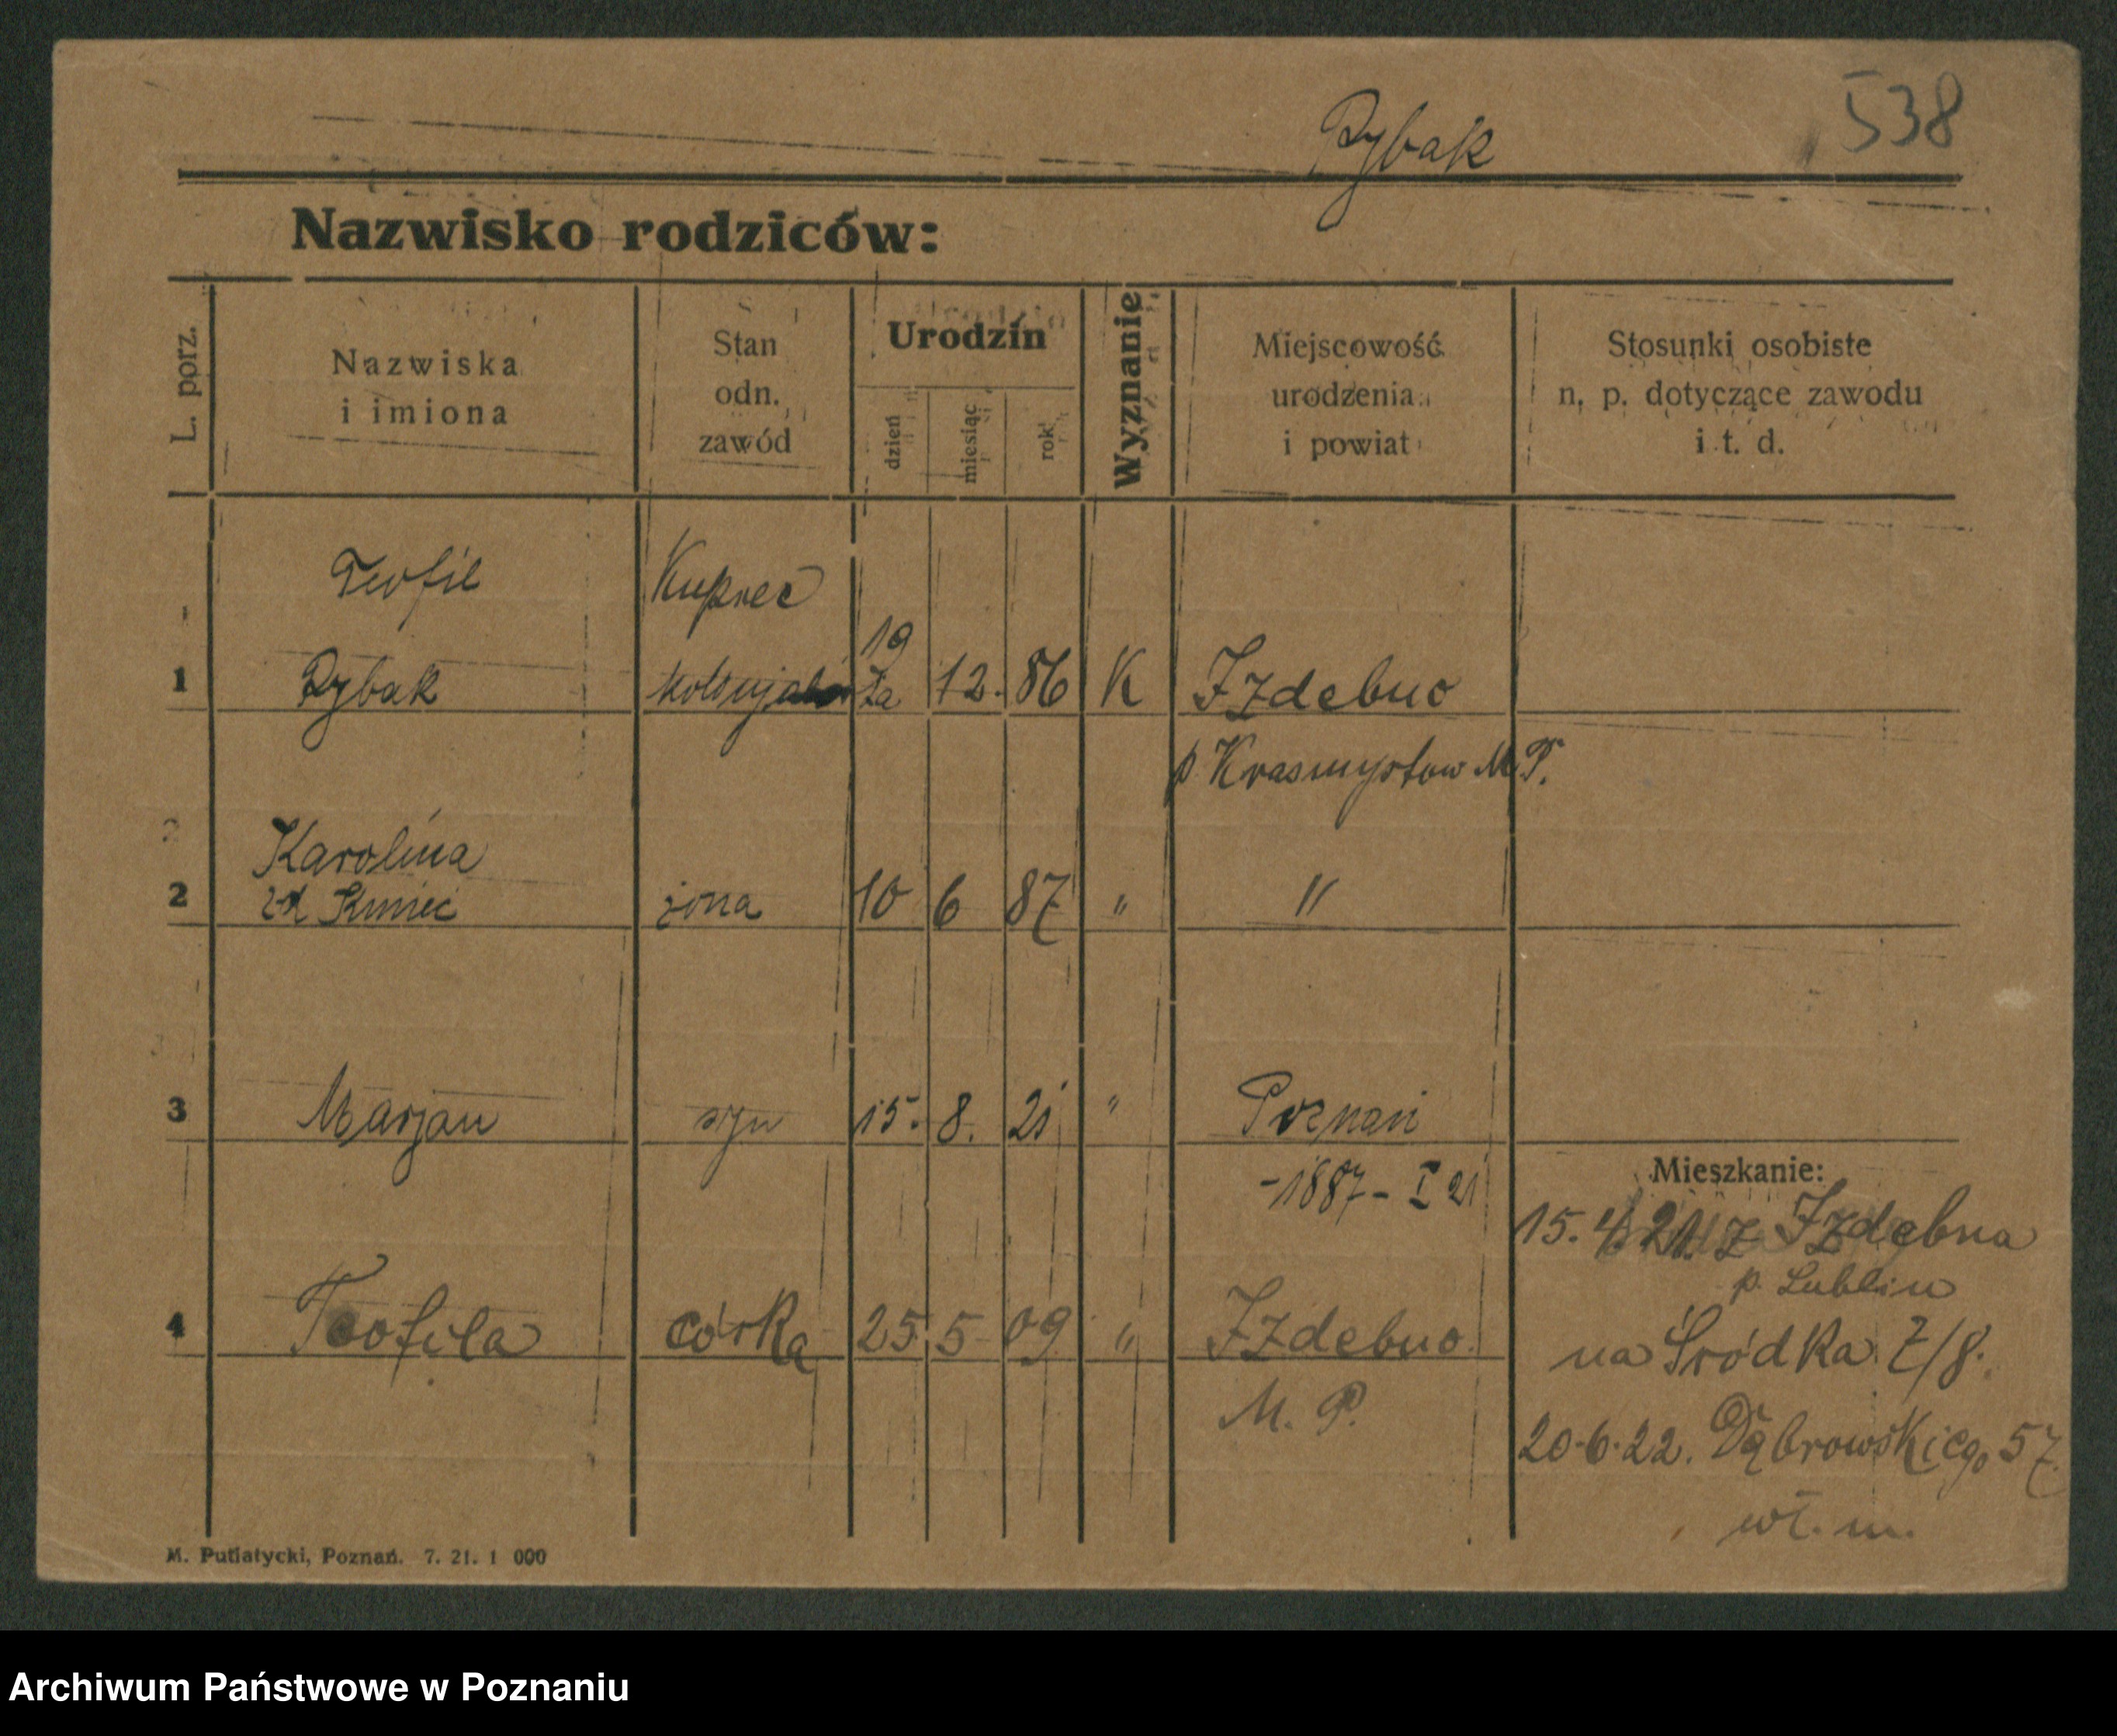 538
Rybak
Nazwisko rodziców:
L. porz.
Nazwiska
i imiona
Stan
odn.
zawód
Urodzin
dzień
miesiąc
rok
Wyznanie
Miejscowość
urodzenia
i powiat
Stosunki osobiste
n. p. dotyczące zawodu
i t. d.
Teofil
Kupiec
19
1 Rybak 12. 86 K Izdebno
p Krasnystow M.P.
Karolina
2 żona 10 6 87 " "
3 Marjan syn 15. 8. 21 " Poznań
-1887- I 21
Mieszkanie:
15. 4. 21. z Izdebna
p. Lublin
4 Teofila córka 25 5 09 " Izdebno
na Śródka 7/8.
M. P.
20.6.22. Dąbrowskiego 57.
wł. m.
M. Putiatycki, Poznań. 7. 21. 1 000
Archiwum Państwowe w Poznaniu